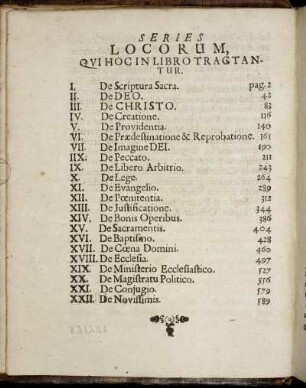 SERIES
LOCORUM,
QVI HOC IN LIBRO TRACTAN-
TUR.
I. De Scriptura Sacra. pag. 2
II. De DEO. 42
III. De CHRISTO. 83
IV. De Creatione. 116
V. De Providentia. 140
VI. De Prædestinatione & Reprobatione. 161
VII. De Imagine DEI. 190
IIX. De Peccato. 211
IX. De Libero Arbitrio. 243
X. De Lege. 264
XI. De Evangelio. 289
XII. De Pœnitentia. 312
XIII. De Justificatione. 344
XIV. De Bonis Operibus. 386
XV. De Sacramentis. 404
XVI. De Baptismo. 428
XVII. De Cœna Domini. 460
XVIII. De Ecclesia. 497
XIX. De Ministerio Ecclesiastico. 527
XX. De Magistratu Politico. 556
XXI. De Conjugio. 579
XXII. De Novissimis. 589